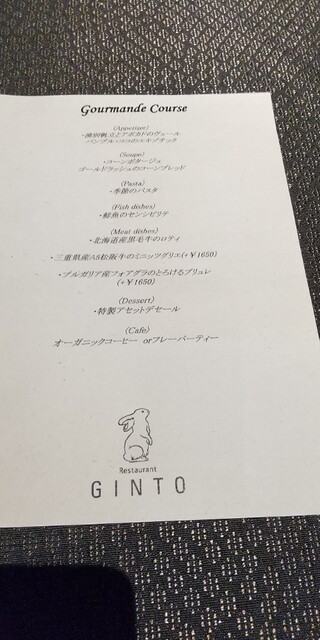 Gourmande Course
(Appetizer)
・湧別帆立とアボカドのヴェール
パンプルココのエキゾチック
(Soupe)
・コーンポタージュ
ゴールドラッシュのコーンブレッド
(Pasta)
・季節のパスタ
(Fish dishes)
・鮮魚のセンシビリテ
(Meat dishes)
・北海道産黒毛牛のロティ
・三重県産A5松阪牛のミニッツグリエ(+￥1650)
・ブルガリア産フォアグラのとろけるブリュレ
(+￥1650)
(Dessert)
・特製アセットデセール
(Cafe)
オーガニックコーヒー orフレーバーティー
Restaurant
GINTO